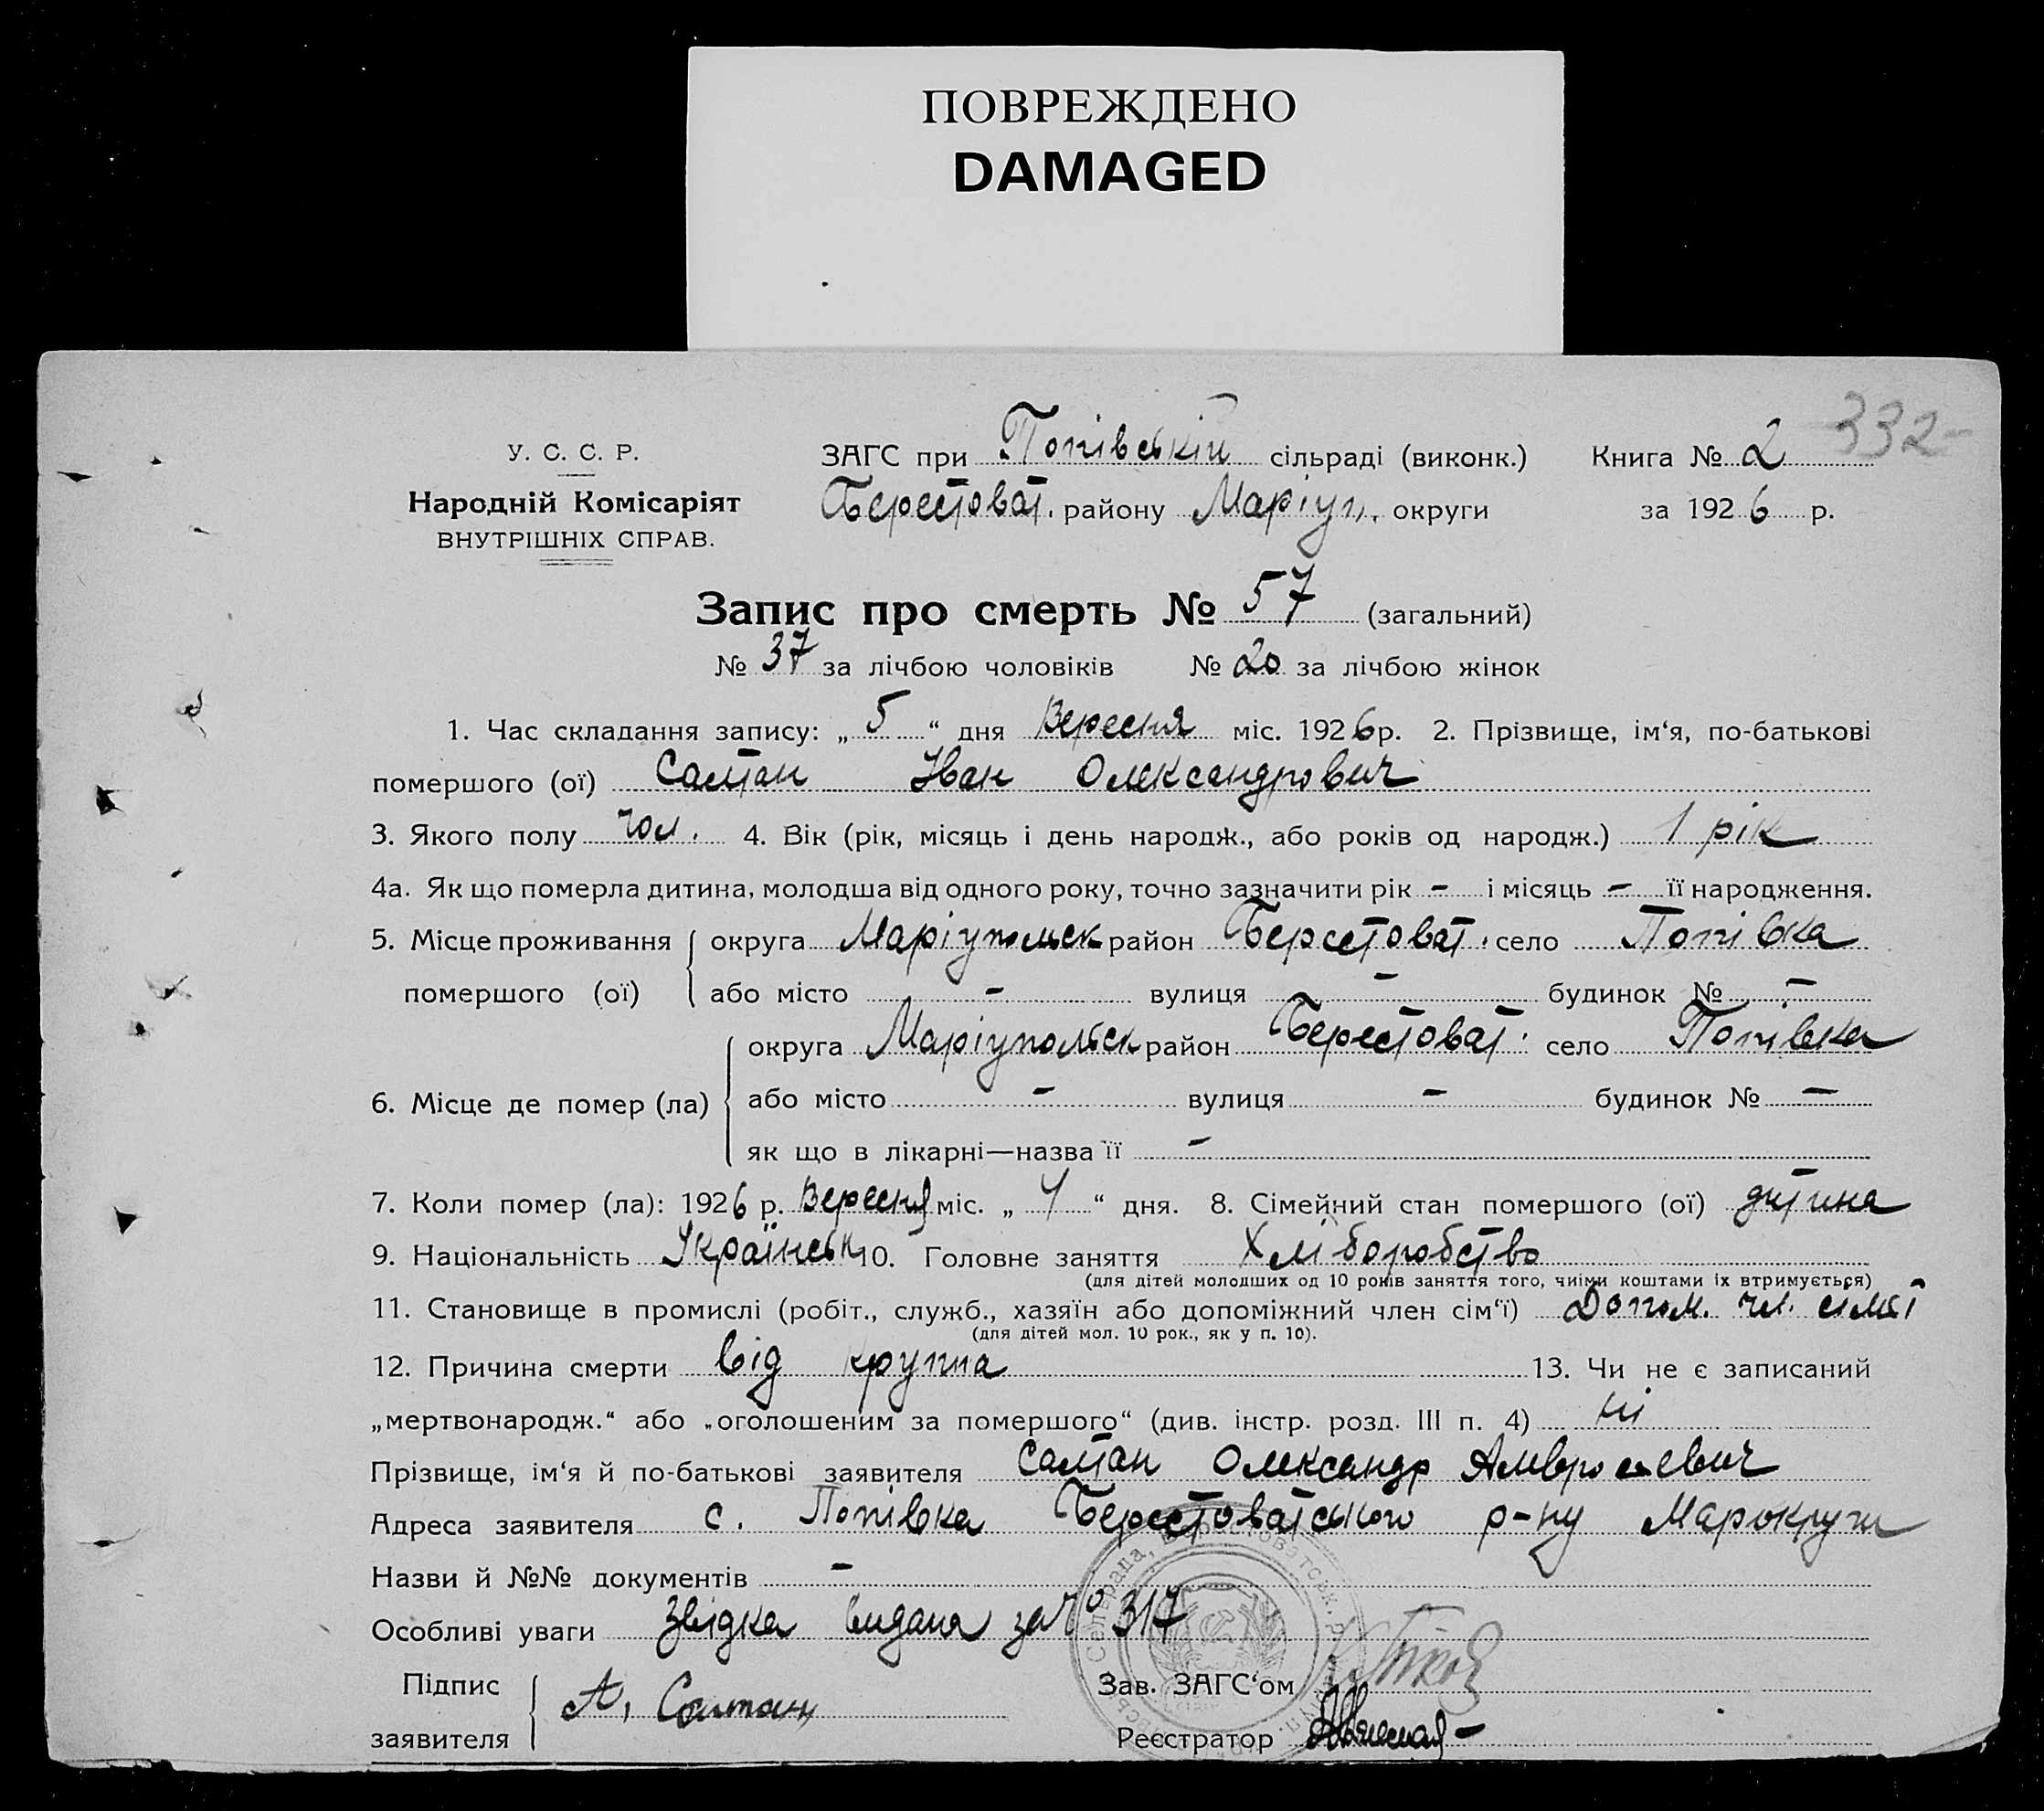 ПОВРЕЖДЕНО
DAMAGED
332
У. С. С. Р.
Народній Комісаріят
ВНУТРІШНІХ СПРАВ.
ЗАГС при Попівській сільраді (виконк.) Книга № 2
Берестоват. району Маріуп. округи за 1926 р.
Запис про смерть № 57 (загальний)
№ 37 за лічбою чоловіків № 20 за лічбою жінок
1. Час складання запису: „ 5 “ дня Вересня міс. 1926 р. 2. Прізвище, ім‘я, по-батькові
помершого (ої) Салтан Іван Олександрович
3. Якого полу чол. 4. Вік (рік, місяць і день народж., або років од народж.) 1 рік
4а. Як що померла дитина, молодша від одного року, точно зазначити рік – і місяць – її народження.
5. Місце проживання округа Маріупольск район Берестоват. село Попівка
помершого (ої) або місто – вулиця – будинок № –
округа Маріупольск район Берестоват. село Попівка
6. Місце де помер (ла) або місто – вулиця – будинок № –
як що в лікарні—назва її –
7. Коли помер (ла): 1926 р. Вересня міс. „ 4 “ дня. 8. Сімейний стан помершого (ої) дитина
9. Національність Українськ 10. Головне заняття Хліборобство
(для дітей молодших од 10 років заняття того, чиїми коштами їх втримується)
11. Становище в промислі (робіт., служб., хазяїн або допоміжний член сім‘ї) Допом. чл. сімї
(для дітей мол. 10 рок., як у п. 10).
12. Причина смерти від крупа 13. Чи не є записаний
„мертвонародж.“ або „оголошеним за помершого“ (див. інстр. розд. III п. 4) ні
Прізвище, ім‘я й по-батькові заявителя Салтан Олександр Амвросьевич
Адреса заявителя с. Попівка Берестоватського р-ну Марокруги
Назви й №№ документів –
Особливі уваги Звідка видана за № 317
Підпис
заявителя А. Салтан
Зав. ЗАГС‘ом
Реєстратор